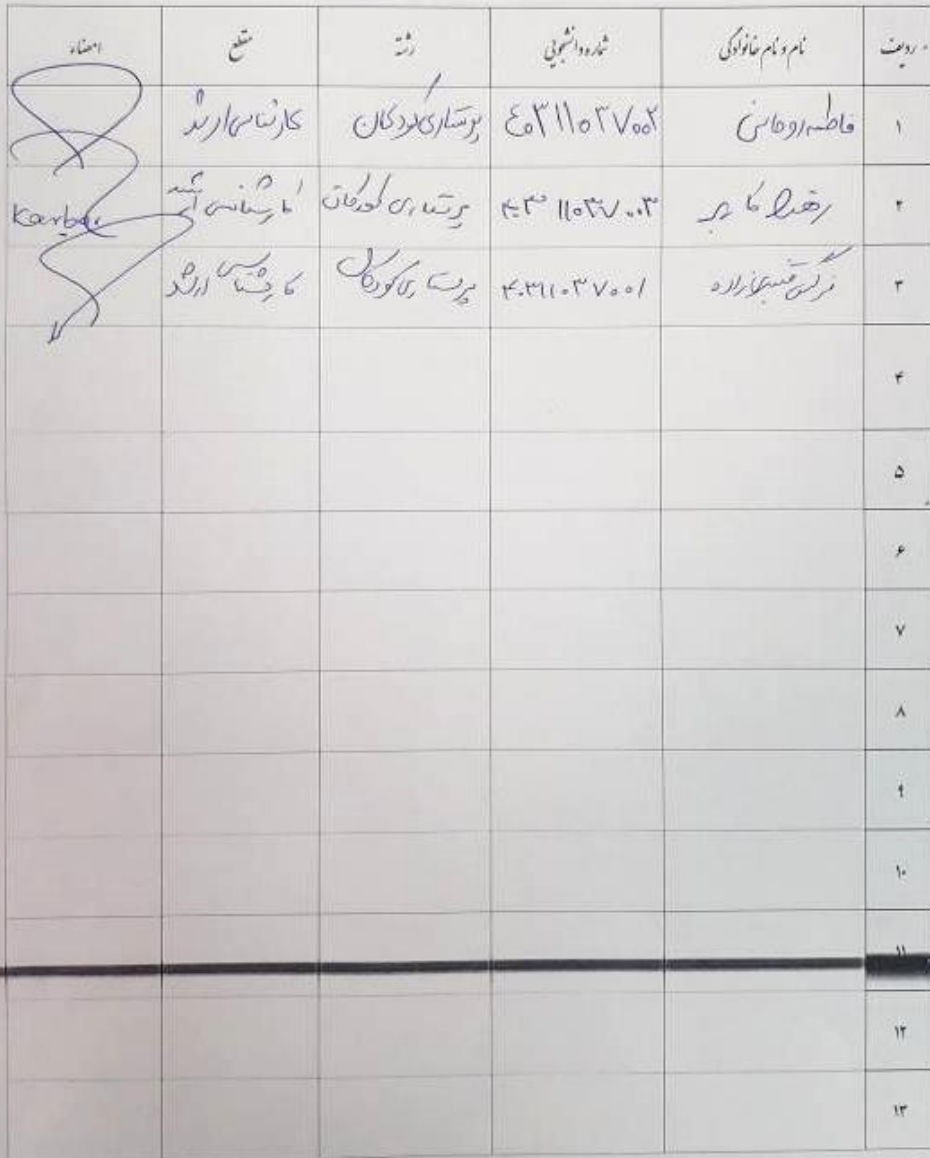 ردیف نام و نام خانوادگی شماره دانشجویی رشته مقطع امضاء
۱ فاطمه روحانی ٤۰۳۱۱۰۳۷۰۰۲ پرستاری کودکان کارشناسی ارشد
۲ ۴۰۳۱۱۰۳۷۰۰۳ پرستاری کودکان کارشناسی ارشد Karbar
۳ نرگس ۴۰۳۱۱۰۳۷۰۰۱ پرستاری کودکان کارشناسی ارشد
۴
۵
۶
۷
۸
۹
۱۰
۱۱
۱۲
۱۳